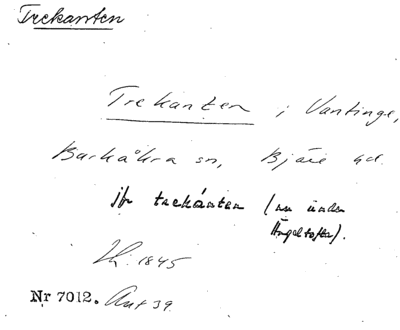 Trekanten
Trekanten i Vantinge,
Barkåkra sn, Bjäre hd.
jfr trekánten (nu under
Ängeltofta).
1845
Nr 7012. Ant 39